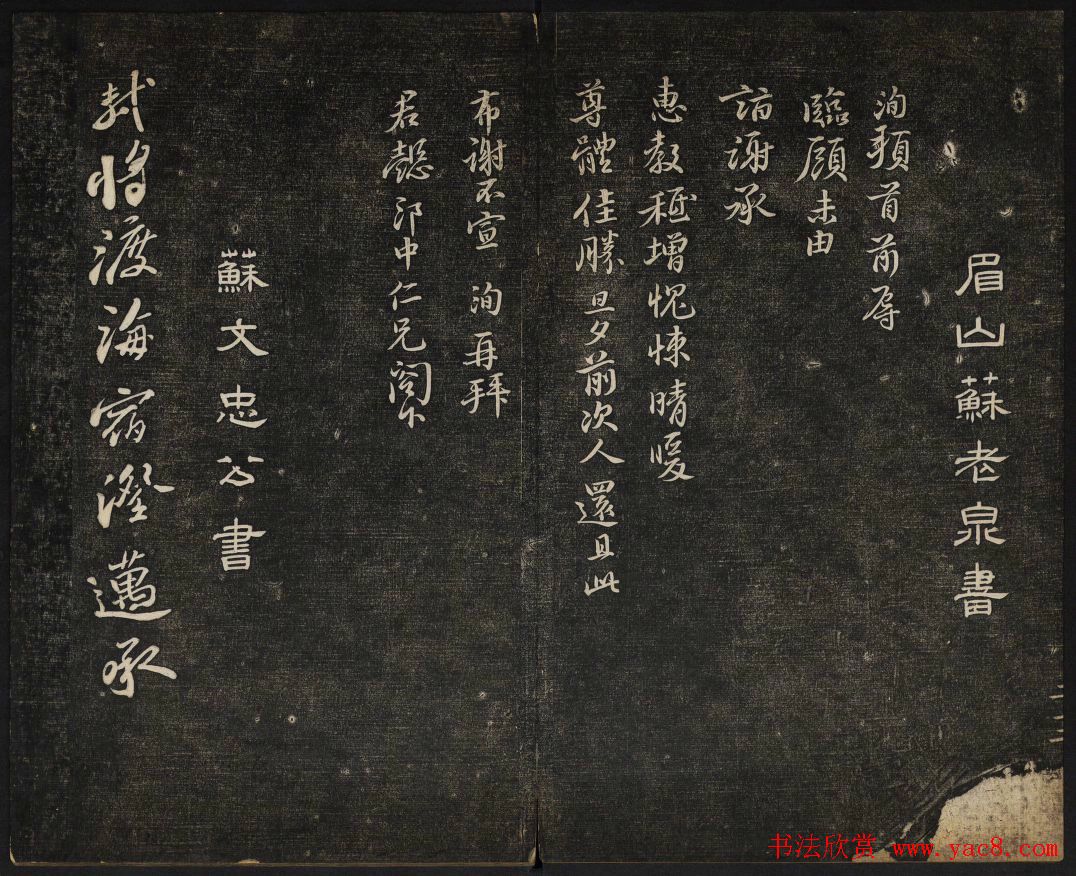 眉山蘇老泉書
洵頓首前辱
臨顧未由
詣謝承
惠教稚增愧悚晴暖
尊體佳勝旦夕前次人還且此
布謝不宣 洵再拜
君懿郎中仁兄閤下
蘇文忠公書
軾將渡海宿澄邁承
书法欣赏 www.yac8.com